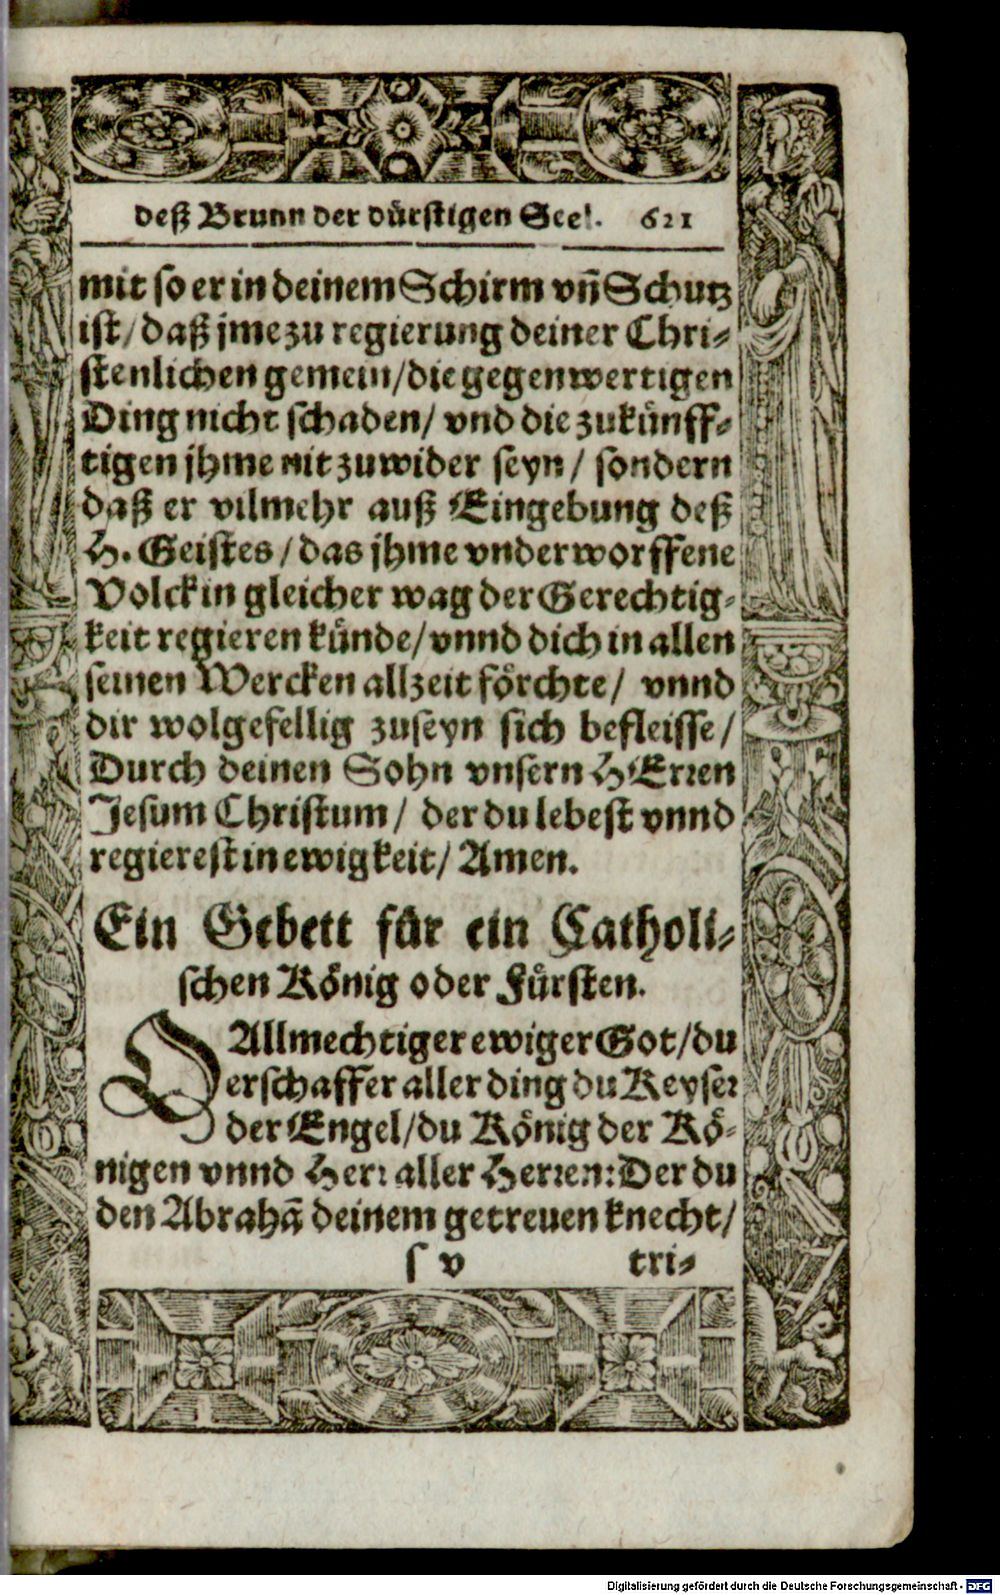 deß Brunn der dürstigen Seel. 621
mit so er in deinem Schirm vñ Schutz
ist/ daß jme zu regierung deiner Chri-
stenlichen gemein/ die gegenwertigen
Ding nicht schaden/ vnd die zukünff-
tigen jhme nit zuwider seyn/ sondern
daß er vilmehr auß Eingebung deß
H. Geistes/ das jhme vnderworffene
Volck in gleicher wag der Gerechtig-
keit regieren künde/ vnnd dich in allen
seinen Wercken allzeit förchte/ vnnd
dir wolgefellig zuseyn sich befleisse/
Durch deinen Sohn vnsern HErren
Jesum Christum/ der du lebest vnnd
regierest in ewigkeit/ Amen.
Ein Gebett für ein Catholi-
schen König oder Fürsten.
O Allmechtiger ewiger Got/ du
erschaffer aller ding du Keyser
der Engel/ du König der Kö-
nigen vnnd Herr aller Herren: Der du
den Abrahā deinem getreuen knecht/
ſ v tri-
Digitalisierung gefördert durch die Deutsche Forschungsgemeinschaft - DFG